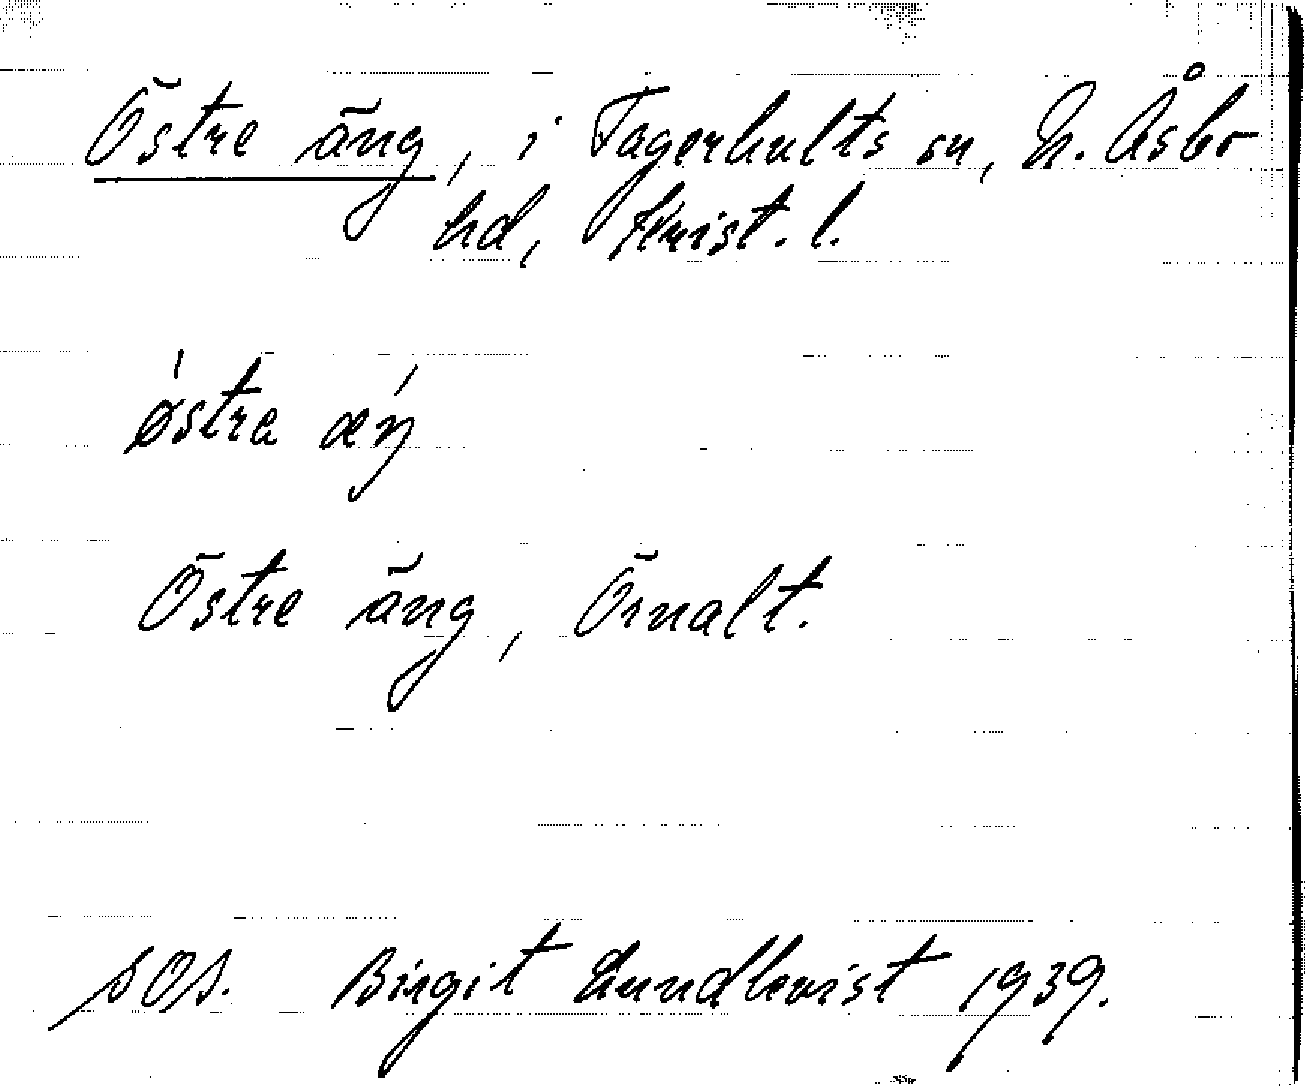 Östre äng, i Fagerhults sn, N. Åsbo
hd, Krist. l.
østra æŋ
Östre äng, Örnalt.
SOS. Birgit Lundkvist 1939.